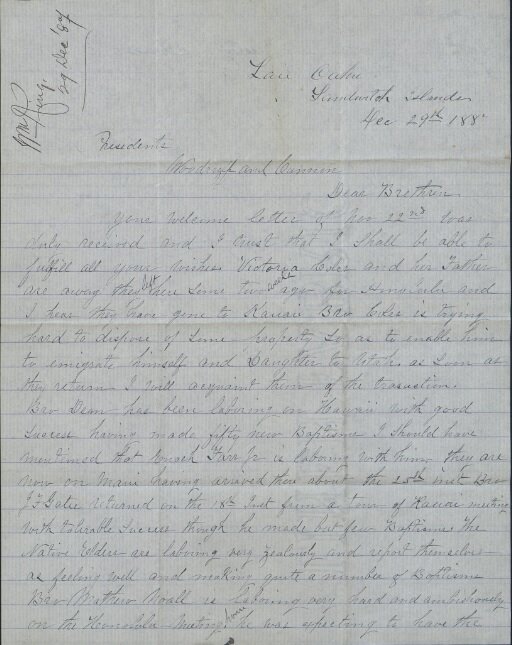 Wm
King
29 Dec '87
Laie Oahu
Sandwich Islands
Dec 29th 188
Presidents
Woodruff and Cannon
Dear Brethren
your welcome letter of Nov 22nd was
duly received and I trust that I shall be able to
fulfill all your wishes Victoria and her Father
are away they left here some two weeks ago for Honolulu and
I hear they have gone to Kauai Bro is trying
hard to dispose of some property so as to enable him
to emigrate himself and Daughter to Utah. as soon as
they return I will acquaint them of the
Bro Dean has been laboring on Hawaii with good
success having made fifty new Baptisms I should have
mentioned that Enoch Farr Jr is laboring with him. they are
now on Maui having arrived there about the 25th inst Bro
J F Gates returned on the 18th Inst from a tour of Kauai meeting
with tolerable success though he made but few Baptisms The
Native Elders are laboring very zealously and report themselves
as feeling well and making quite a number of Baptisms
Bro Mathew Noall is laboring very hard and ambitiously
on the Honolulu Meeting house he was expecting to have the